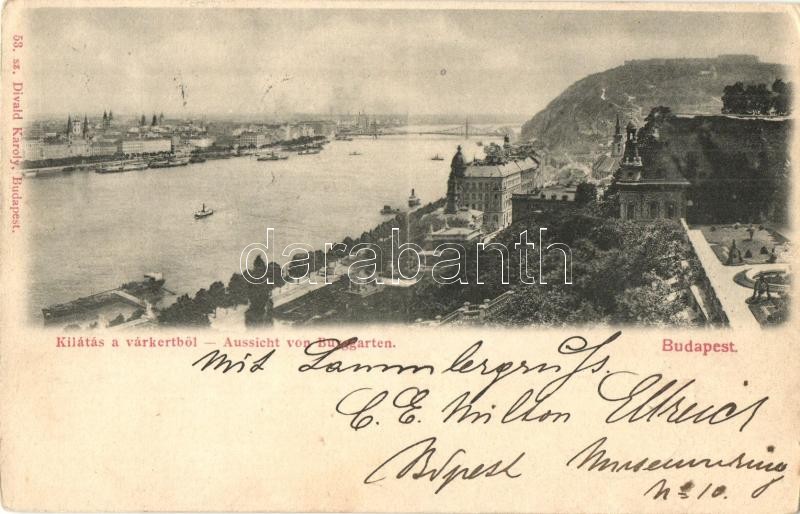 53. sz. Divald Karoly, Budapest.
darabanth
Kilátás a várkertböl — Aussicht von Burggarten.
Budapest.
mit Sammlergruß.
C. E. Milton Ellreich
Bdpest Museumring
No 10.